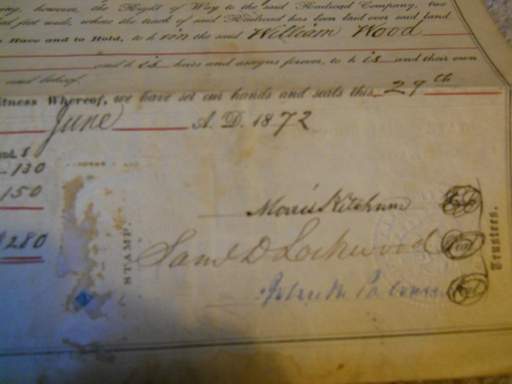 however, the Right of Way to the said Railroad Company, two
feet wide, where the track of said Railroad has been laid over said land
Have and to Hold, to him the said William Wood
and his heirs and assigns forever, to his and their own
and behoof.
Witness Whereof, we have set our hands and seals this 29th
June A. D. 1872
130
150
$280
STAMP.
Morris Ketchum
Saml D Lockwood
Trustees.